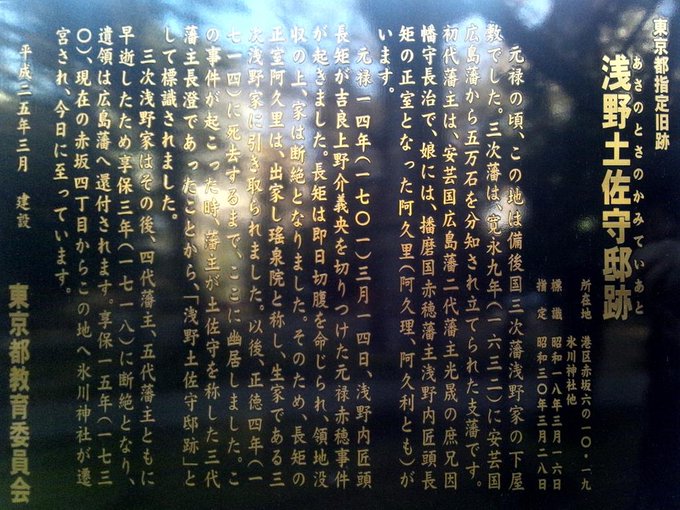 東京都指定旧跡
あさのとさのかみていあと
浅野土佐守邸跡
所在地 港区赤坂六の一〇・一九
氷川神社他
標識 昭和一八年三月一六日
指定 昭和三〇年三月二八日
元禄の頃、この地は備後国三次藩浅野家の下屋
敷でした。三次藩は、寛永九年(一六三二)に安芸国
広島藩から五万石を分知され立てられた支藩です。
初代藩主は、安芸国広島藩二代藩主光晟の庶兄因
幡守長治で、娘には、播磨国赤穂藩主浅野内匠頭長
矩の正室となった阿久里(阿久理、阿久利とも)が
います。
元禄一四年(一七〇一)三月一四日、浅野内匠頭
長矩が吉良上野介義央を切りつけた元禄赤穂事件
が起きました。長矩は即日切腹を命じられ、領地没
収の上、家は断絶となりました。そのため、長矩の
正室阿久里は、出家し瑶泉院と称し、生家である三
次浅野家に引き取られました。以後、正徳四年(一
七一四)に死去するまで、ここに幽居しました。こ
の事件が起こった時、藩主が土佐守を称した三代
藩主長澄であったことから、「浅野土佐守邸跡」と
して標識されました。
三次浅野家はその後、四代藩主、五代藩主ともに
早逝したため享保三年(一七一八)に断絶となり、
遺領は広島藩へ還付されます。享保一五年(一七三
〇)、現在の赤坂四丁目からこの地へ氷川神社が遷
宮され、今日に至っています。
平成二五年三月 建設
東京都教育委員会